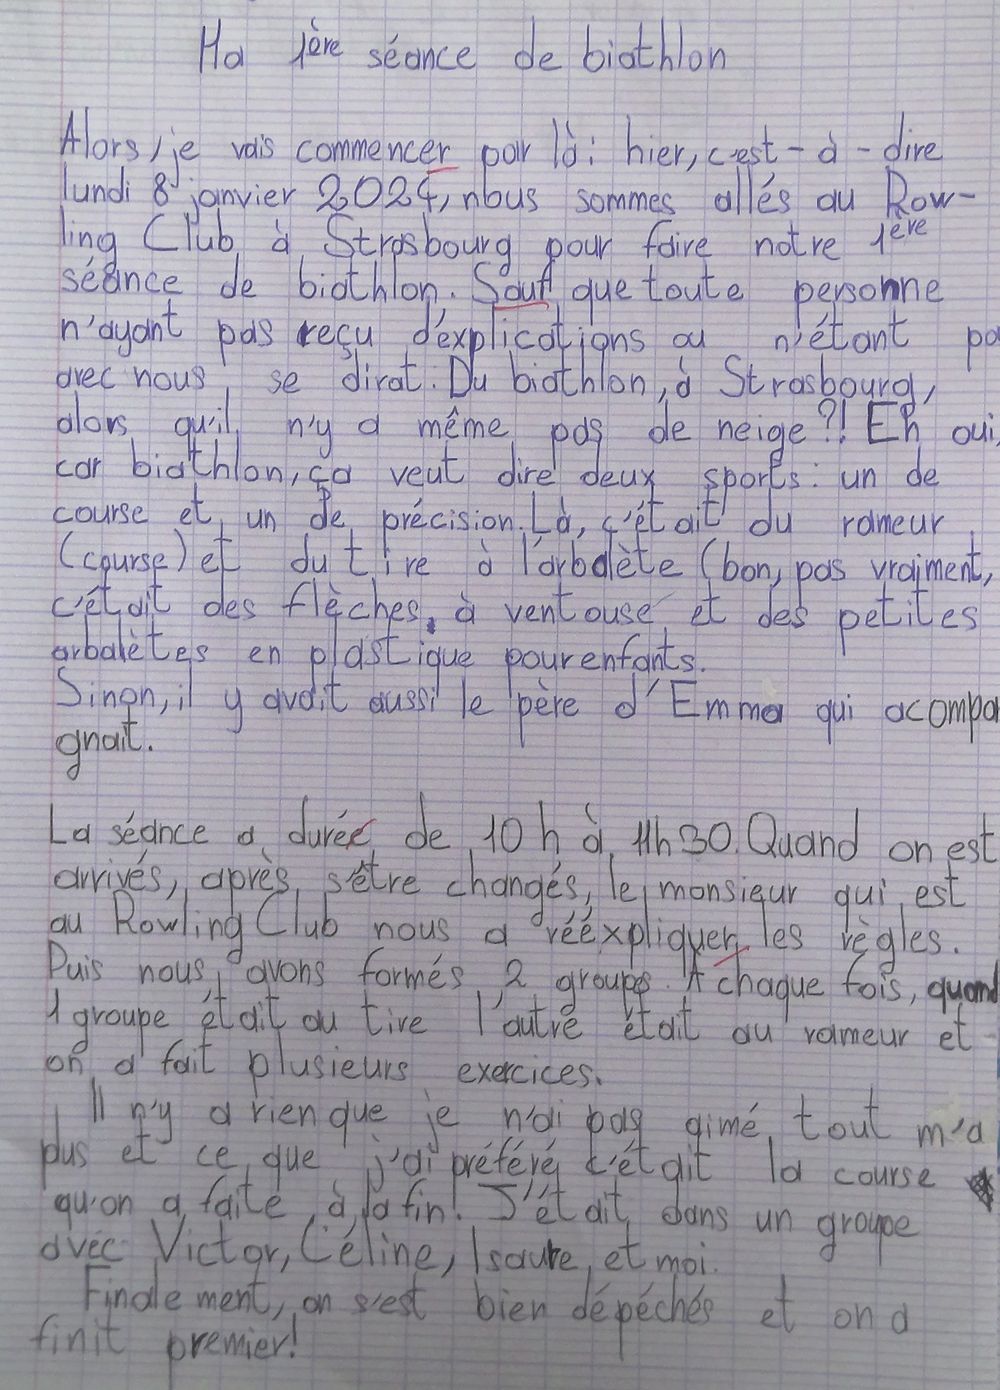 Ma 1ère séance de biathlon
Alors, je vais commencer par là: hier, c'est-à-dire
lundi 8 janvier 2024, nous sommes allés au Row-
ling Club à Strasbourg pour faire notre 1ère
séance de biathlon. Sauf que toute personne
n'ayant pas reçu d'explications ou n'étant pa
avec nous se dirat: Du biathlon, à Strasbourg,
alors qu'il n'y a même pas de neige?! Eh oui,
car biathlon, ça veut dire deux sports: un de
course et un de précision. Là, c'était du rameur
(course) et du tire à l'arbalète (bon, pas vraiment,
c'était des flèches à ventouse et des petites
arbalètes en plastique pour enfants.
Sinon, il y avait aussi le père d'Emma qui acompa
gnait.
La séance a durée de 10 h à 11h30. Quand on est
arrivés, après s'être changés, le monsieur qui est
au Rowling Club nous a réexpliquer les règles.
Puis nous avons formés 2 groups. A chaque fois, quand
1 groupe était au tire l'autre était au rameur et
on a fait plusieurs exercices.
Il n'y a rien que je n'ai pas aimé, tout m'a
plus et ce que j'ai préféré c'était la course
qu'on a faite à la fin! J'était dans un groupe
avec Victor, Céline, Isaure et moi.
Finalement, on s'est bien dépéchés et on a
finit premier!